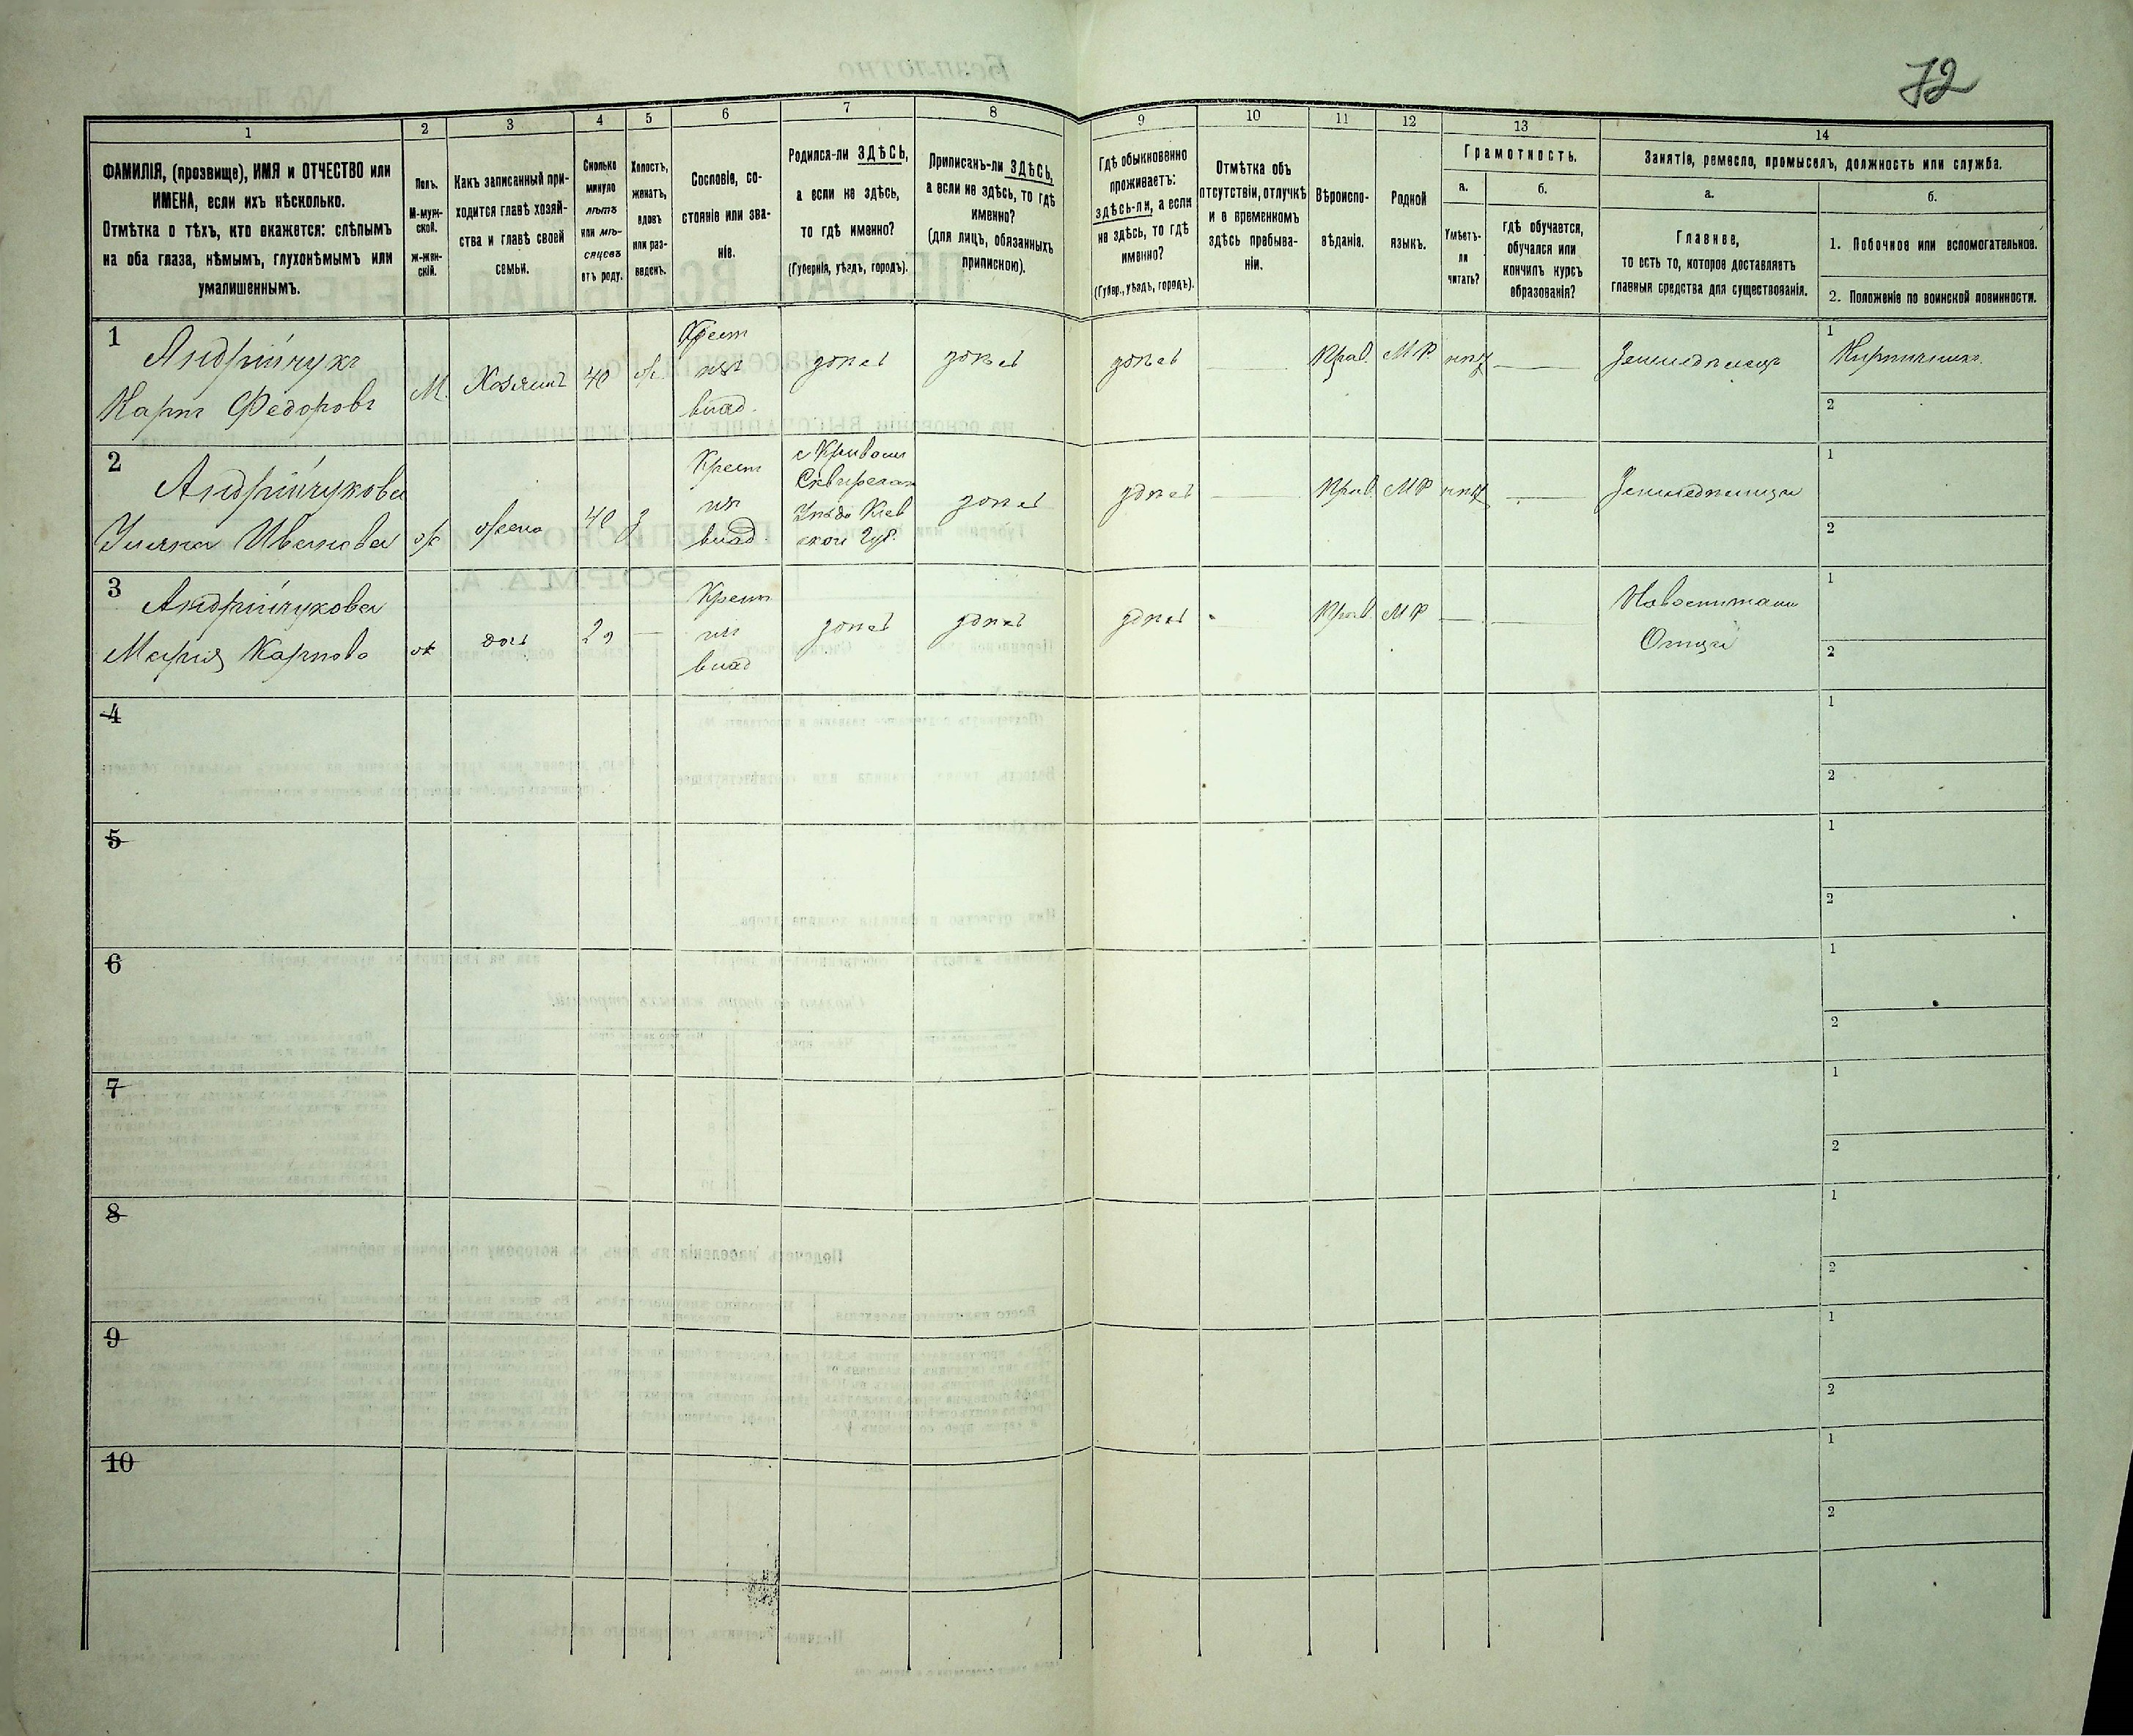 72
1
2
3
4
5
6
7
8
9
10
11
12
13
14
ФАМИЛІЯ, (прозвище), ИМЯ и ОТЧЕСТВО или
ИМЕНА, если ихъ нѣсколько.
Отмѣтка о тѣхъ, кто окажется: слѣпымъ
на оба глаза, нѣмымъ, глухонѣмымъ или
умалишеннымъ.
Полъ.
М-муж-
ской.
ж-жен-
скій.
Какъ записанный при-
ходится главѣ хозяй-
ства и главѣ своей
семьи.
Сколько
минуло
лѣтъ
или мѣ-
сяцевъ
отъ роду.
Холостъ,
женатъ,
вдовъ
или раз-
веденъ.
Сословіе, со-
стояніе или зва-
ніе.
Родился-ли ЗДѢСЬ,
а если не здѣсь,
то гдѣ именно?
(Губернія, уѣздъ, городъ).
Приписанъ-ли ЗДѢСЬ,
а если не здѣсь, то гдѣ
именно?
(для лицъ, обязанныхъ
припискою).
Гдѣ обыкновенно
проживаетъ:
здѣсь-ли, а если
не здѣсь, то гдѣ
именно?
(Губер., уѣздъ, городъ).
Отмѣтка объ
отсутствіи, отлучкѣ
и о временномъ
здѣсь пребыва-
ніи.
Вѣроиспо-
вѣданіе.
Родной
языкъ.
Грамотность.
а.
Умѣетъ-
ли
читать?
б.
гдѣ обучается,
обучался или
кончилъ курсъ
образованія?
Занятіе, ремесло, промыселъ, должность или служба.
а.
Главное,
то есть то, которое доставляетъ
главныя средства для существованія.
б.
1. Побочное или вспомогательное.
2. Положеніе по воинской повинности.
1
Андрійчукъ
Карпъ Федоровъ
М.
Хозяинъ
40
ж.
Крест
изъ
влад.
здѣсь
здѣсь
здѣсь
Прав.
МР
нѣт
Земледѣлецъ
1
2
2
Андрійчукова
Ивановна
ж
жена
40
з
Крест
изъ
влад.
с Кривого
Сквирскаго
Уѣзда Кіев
ской Губ.
здѣсь
здѣсь
Прав.
МР
нѣт
Земледѣлица
1
2
3
Андрійчукова
Марія Карпова
ж
дочь
Крест
изъ
влад
здѣсь
здѣсь
здѣсь
Прав.
МР
Отца
1
2
4
1
2
5
1
2
6
1
2
7
1
2
8
1
2
9
1
2
10
1
2